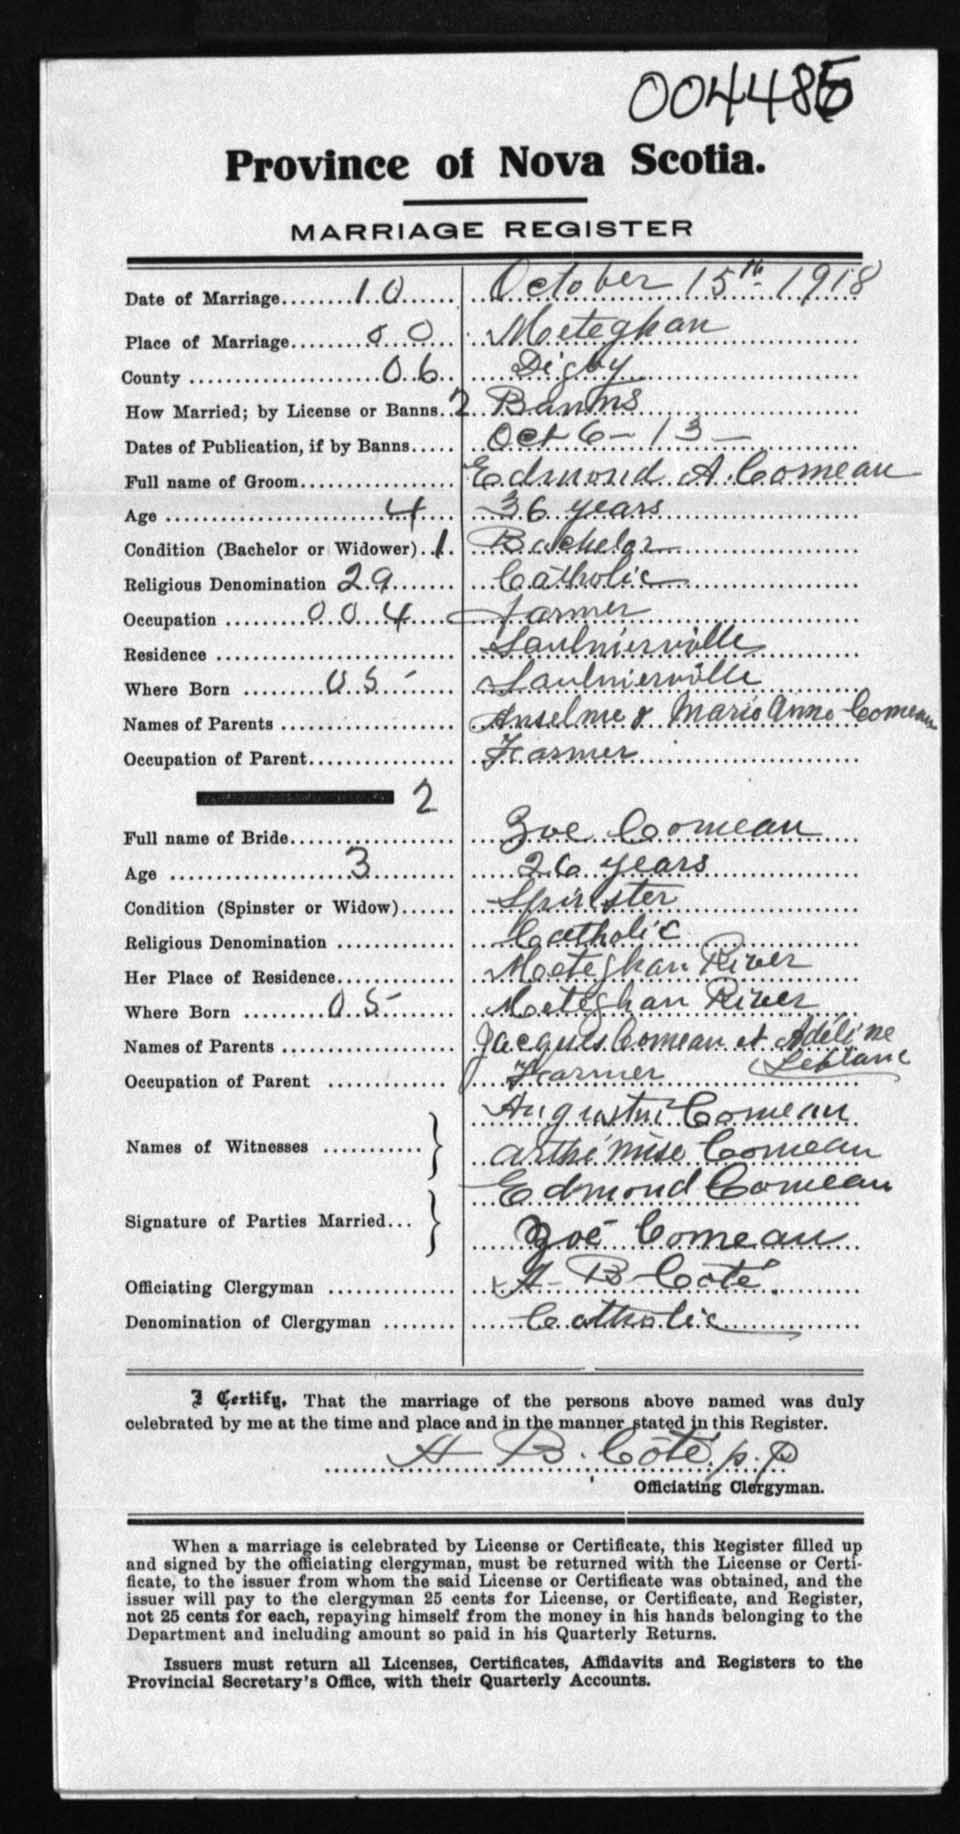 004485
Province of Nova Scotia.
MARRIAGE REGISTER
Date of Marriage........10...... October 15th 1918
Place of Marriage........00.... Meteghan
County ....................06.. Digby
How Married; by License or Banns..2.. Banns
Dates of Publication, if by Banns..... Oct 6 - 13 -
Full name of Groom................. Edmond A. Comeau
Age ........................4.... 36 years
Condition (Bachelor or Widower)..1. Bachelor
Religious Denomination 29....... Catholic
Occupation .........004..... farmer
Residence .......................... Saulnierville
Where Born .........05-...... Saulnierville
Names of Parents ................... Anselme & Marie Anne Comeau
Occupation of Parent................ Farmer
2
Full name of Bride.................. Zoe Comeau
Age ...................3......... 26 years
Condition (Spinster or Widow)...... Spinster
Religious Denomination ............. Catholic
Her Place of Residence.............. Meteghan River
Where Born .........05-...... Meteghan River
Names of Parents ................... Jacques Comeau et Adéline Leblanc
Occupation of Parent ............. Farmer
Names of Witnesses ............ } Augustin Comeau
Arthémise Comeau
Signature of Parties Married... } Edmond Comeau
Zoé Comeau
Officiating Clergyman .............. A. B. Coté.
Denomination of Clergyman ........ Catholic
I Certify, That the marriage of the persons above named was duly
celebrated by me at the time and place and in the manner stated in this Register.
A B. Côté. p.p
Officiating Clergyman.
When a marriage is celebrated by License or Certificate, this Register filled up
and signed by the officiating clergyman, must be returned with the License or Certi-
ficate, to the issuer from whom the said License or Certificate was obtained, and the
issuer will pay to the clergyman 25 cents for License, or Certificate, and Register,
not 25 cents for each, repaying himself from the money in his hands belonging to the
Department and including amount so paid in his Quarterly Returns.
Issuers must return all Licenses, Certificates, Affidavits and Registers to the
Provincial Secretary's Office, with their Quarterly Accounts.